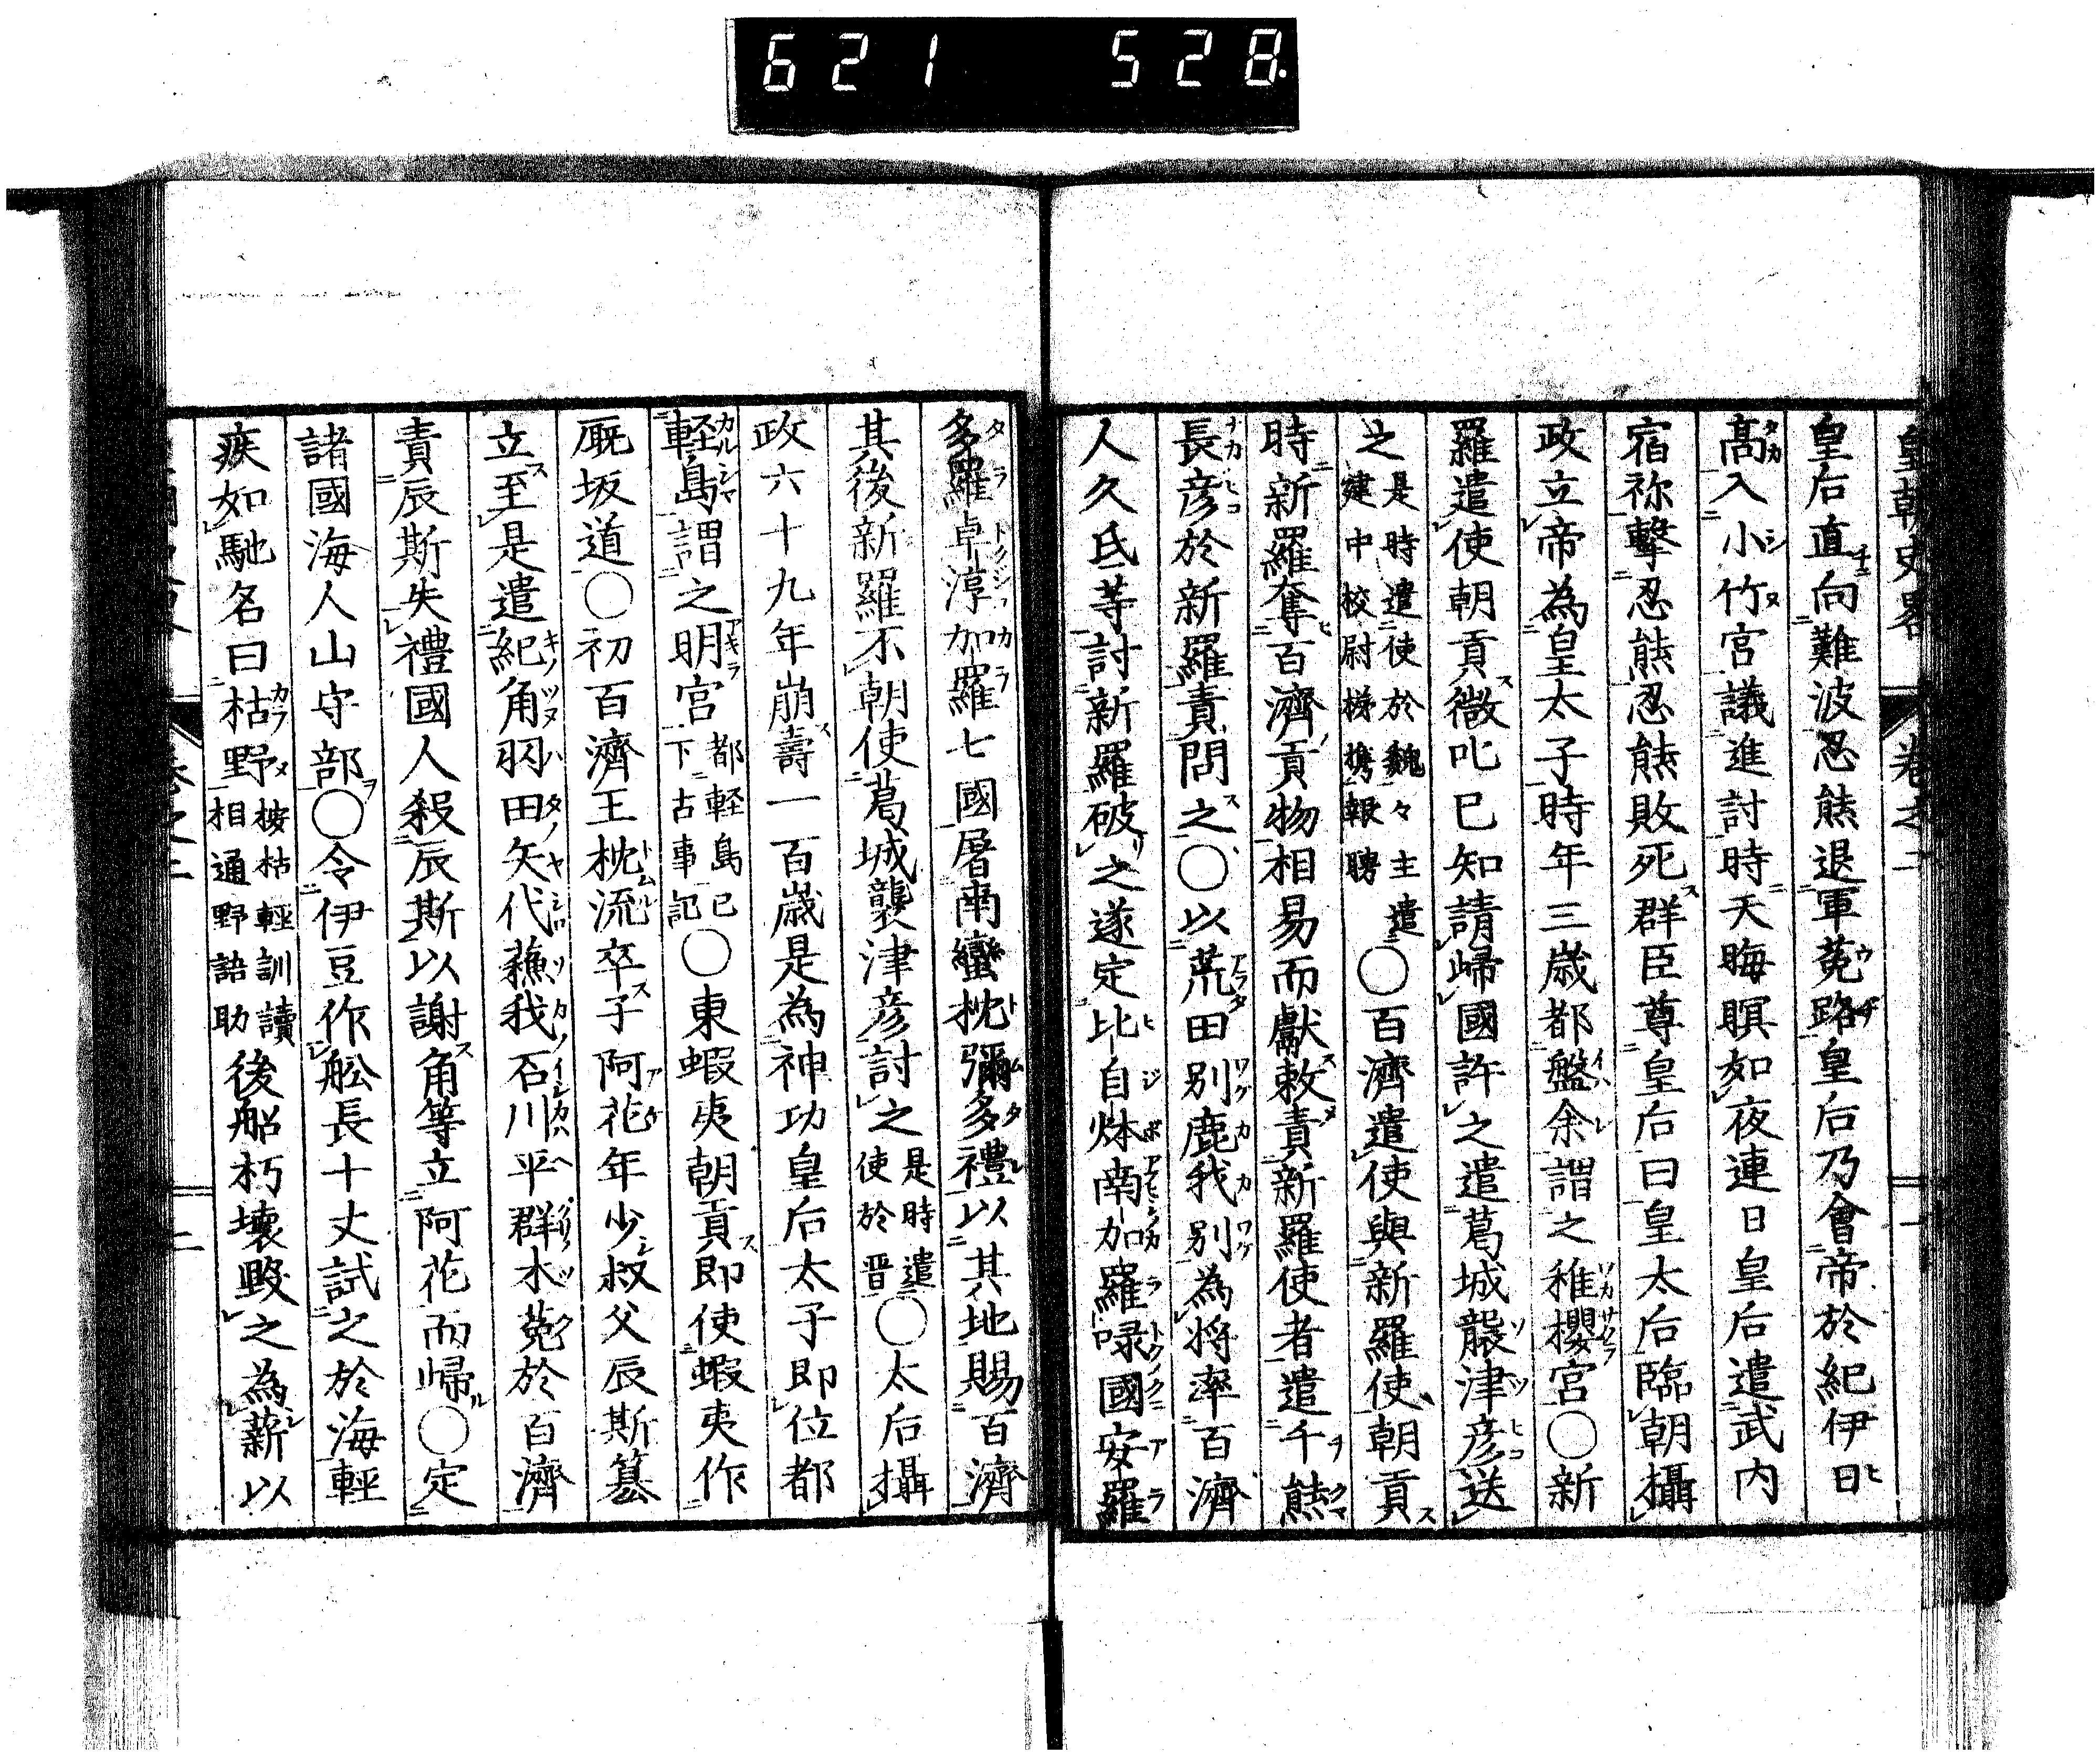 621 528
皇朝史畧 卷之二
皇后直向難波忍熊退軍菟路皇后乃會帝於紀伊日
高入小竹宮議進討時天晦暝如夜連日皇后遣武内
宿祢擊忍熊忍熊敗死群臣尊皇后曰皇太后臨朝攝
政立帝為皇太子時年三歳都盤余謂之稚櫻宮〇新
羅遣使朝貢微叱已知請歸國許之遣葛城襲津彦送
之是時遣使於魏々主遣建中校尉梯携報聘〇百濟遣使與新羅使朝貢
時新羅奪百濟貢物相易而獻敕責新羅使者遣千熊
長彦於新羅責問之〇以荒田別鹿我別為將率百濟
人久氐等討新羅破之遂定比自㶱南加羅㖨國安羅
多羅卓淳加羅七國屠南蠻枕彌多禮以其地賜百濟
其後新羅不朝使葛城襲津彦討之是時遣使於晋〇太后攝
政六十九年崩壽一百歳是為神功皇后太子即位都
輕島謂之明宮都軽島已下古事記〇東蝦夷朝貢即使蝦夷作
厩坂道〇初百濟王枕流卒子阿花年少叔父辰斯簒
立至是遣紀角羽田矢代蘓我石川平群木菟於百濟
責辰斯失禮國人殺辰斯以謝角等立阿花而歸〇定
諸國海人山守部〇令伊豆作舩長十丈試之於海輕
疾如馳名曰枯野按枯輕訓讀相通野語助後船朽壞毀之為薪以